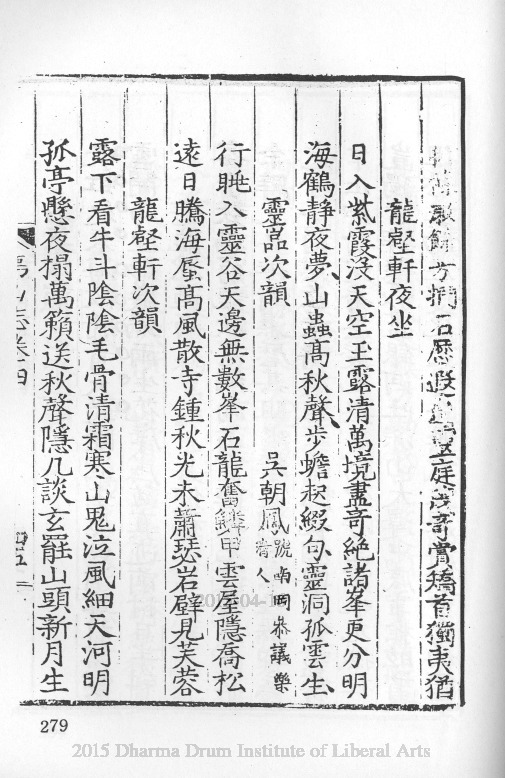 餘方捫石歷遐
庭茂奇賞矯首獨夷猶
龍壑軒夜坐
日入紫霞沒天空玉露清萬境盡奇絕諸峯更分明
海鶴靜夜夢山蟲高秋聲步蟾起綴句靈洞孤雲生
靈嵓次韻
吳朝鳳號南岡恭議樂清人
行眺入靈谷天邊無數峯石龍奮鱗甲雲屋隱喬松
遠日騰海蜃高風散寺鍾秋光未蕭瑟岩壁見芙蓉
龍壑軒次韻
露下看牛斗陰陰毛骨清霜寒山鬼泣風細天河明
孤亭懸夜榻萬籟送秋聲隱几談玄罷山頭新月生
山志卷四
279
2015-04-1
2015 Dharma Drum Institute of Liberal Arts